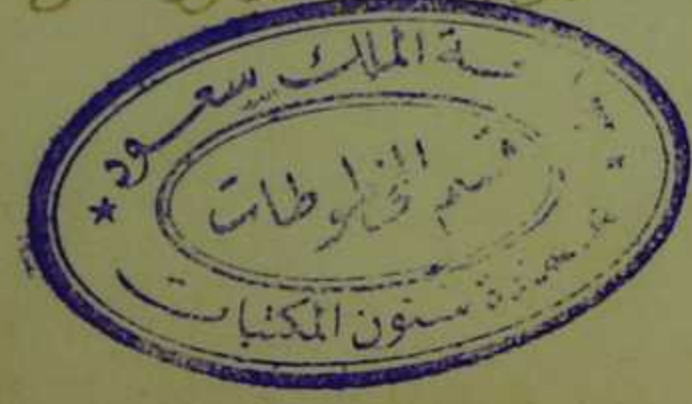 الملك سعود
قسم المخطوطات
شئون المكتبات